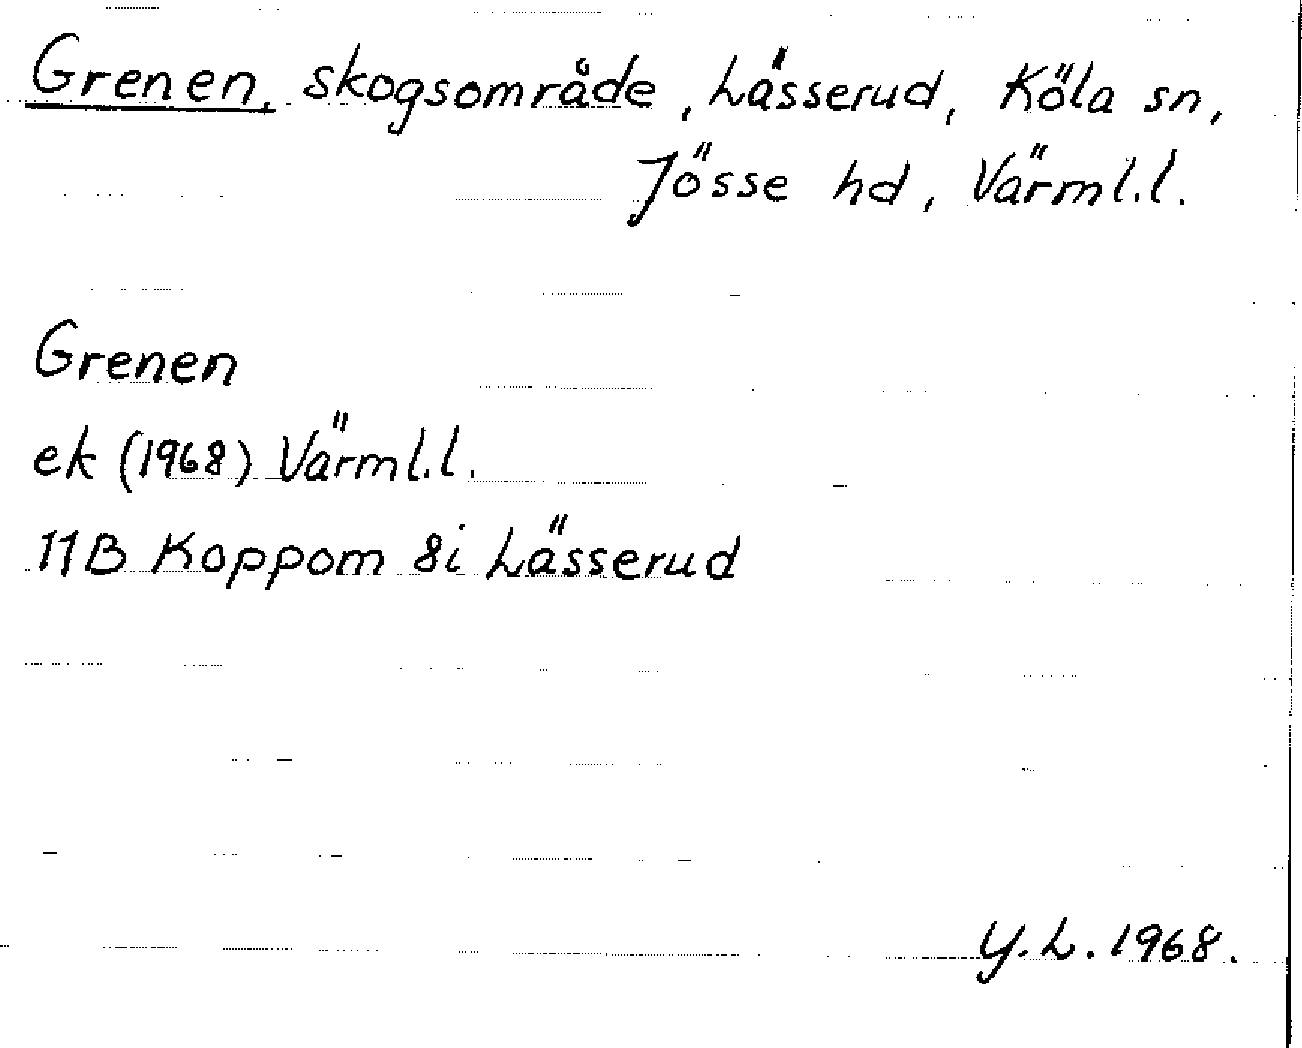 Grenen, skogsområde, Lässerud, Köla sn,
Jösse hd, Värml.l.
Grenen
ek (1968) Värml.l.
11B Koppom 8i Lässerud
Y.L. 1968.